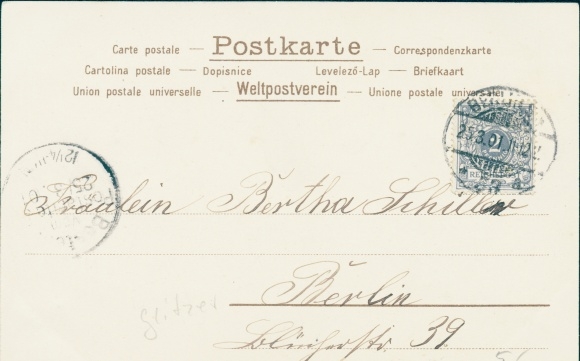 Carte postale — Postkarte — Correspondenzkarte
Cartolina postale — Dopisnice Levelező-Lap — Briefkaart
Union postale universelle — Weltpostverein — Unione postale universale
BERLIN
25.3.01
REICHSPOST
Fräulein Bertha Schiller
Berlin
glitzer
Blücherstr. 39